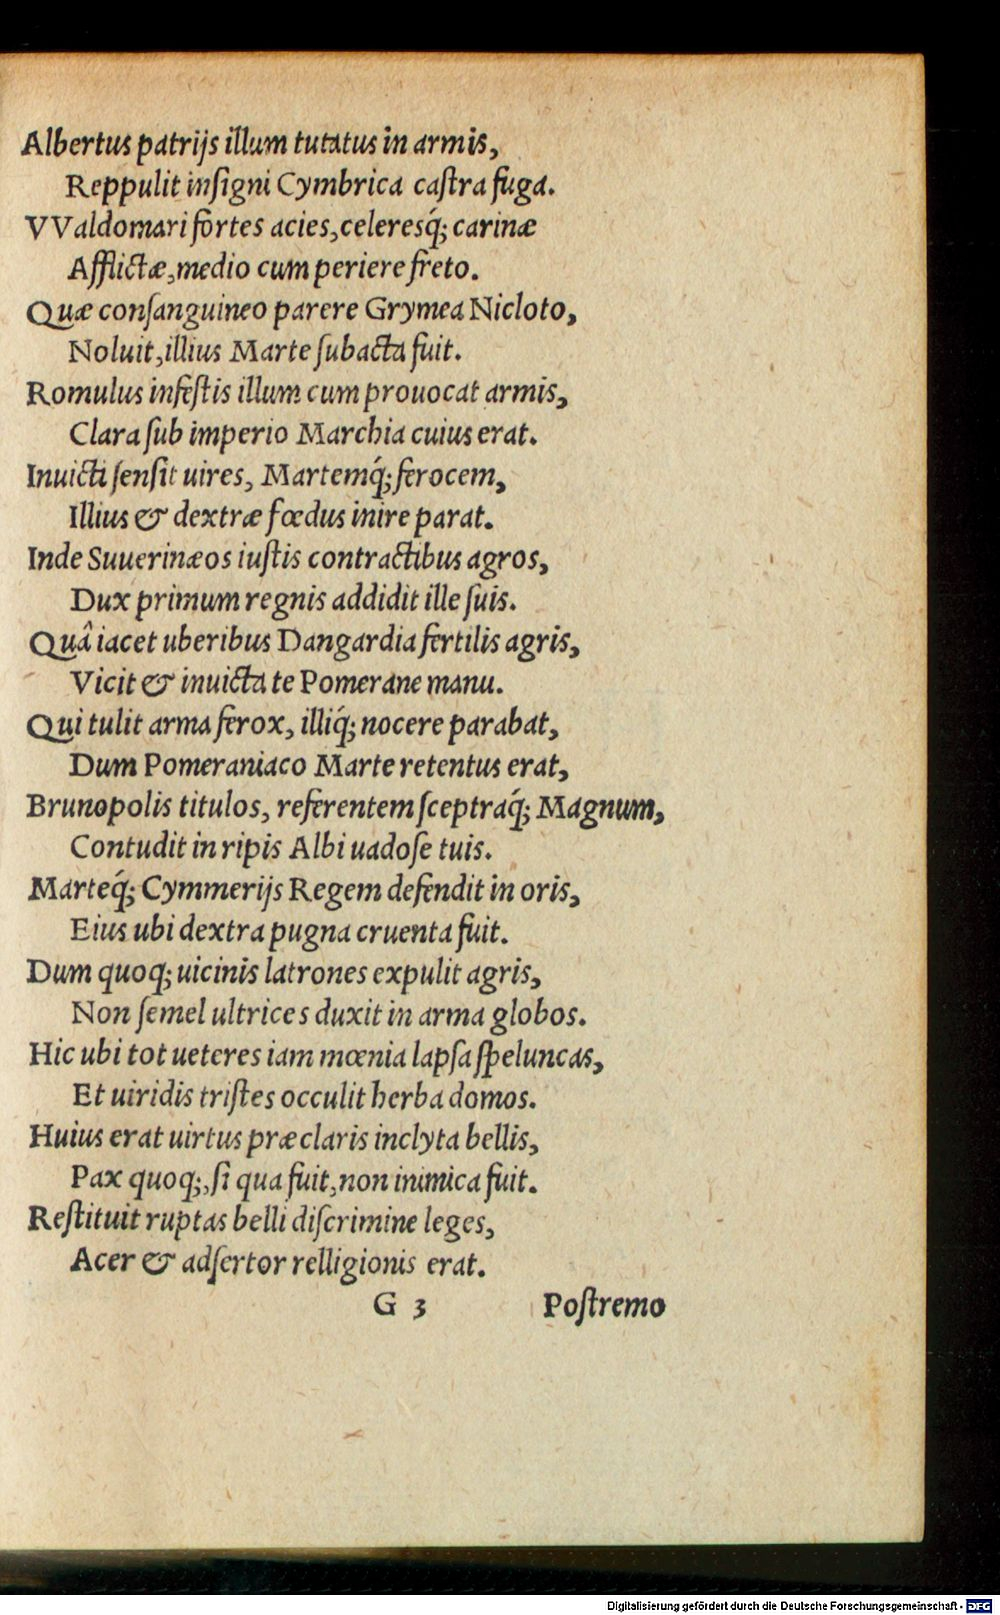 Albertus patrijs illum tutatus in armis,
Reppulit inſigni Cymbrica caſtra fuga.
VValdomari fortes acies, celeresq́; carinæ
Afflictæ, medio cum periere freto.
Quæ conſanguineo parere Grymea Nicloto,
Noluit, illius Marte ſubacta fuit.
Romulus infeſtis illum cum prouocat armis,
Clara ſub imperio Marchia cuius erat.
Inuicti ſenſit uires, Martemq́; ferocem,
Illius & dextræ fœdus inire parat.
Inde Suuerinæos iuſtis contractibus agros,
Dux primum regnis addidit ille ſuis.
Quâ iacet uberibus Dangardia fertilis agris,
Vicit & inuicta te Pomerane manu.
Qui tulit arma ferox, illiq́; nocere parabat,
Dum Pomeraniaco Marte retentus erat,
Brunopolis titulos, referentem ſceptraq́; Magnum,
Contudit in ripis Albi uadoſe tuis.
Marteq́; Cymmerijs Regem defendit in oris,
Eius ubi dextra pugna cruenta fuit.
Dum quoq; uicinis latrones expulit agris,
Non ſemel ultrices duxit in arma globos.
Hic ubi tot ueteres iam mœnia lapſa ſpeluncas,
Et uiridis triſtes occulit herba domos.
Huius erat uirtus præclaris inclyta bellis,
Pax quoq;, ſi qua fuit, non inimica fuit.
Reſtituit ruptas belli diſcrimine leges,
Acer & adſertor relligionis erat.
G 3 Poſtremo
Digitalisierung gefördert durch die Deutsche Forschungsgemeinschaft - DFG